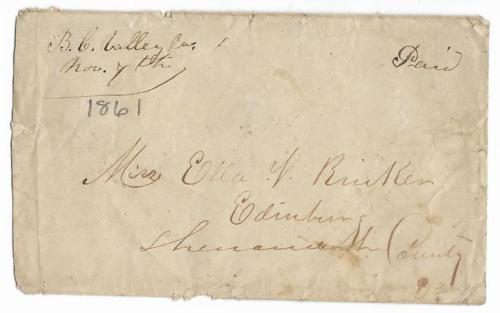 B. C. Valley
Paid
Nov. 7th
1861
Miss Ella V. Rinker
Edinburg
Shenandoah County